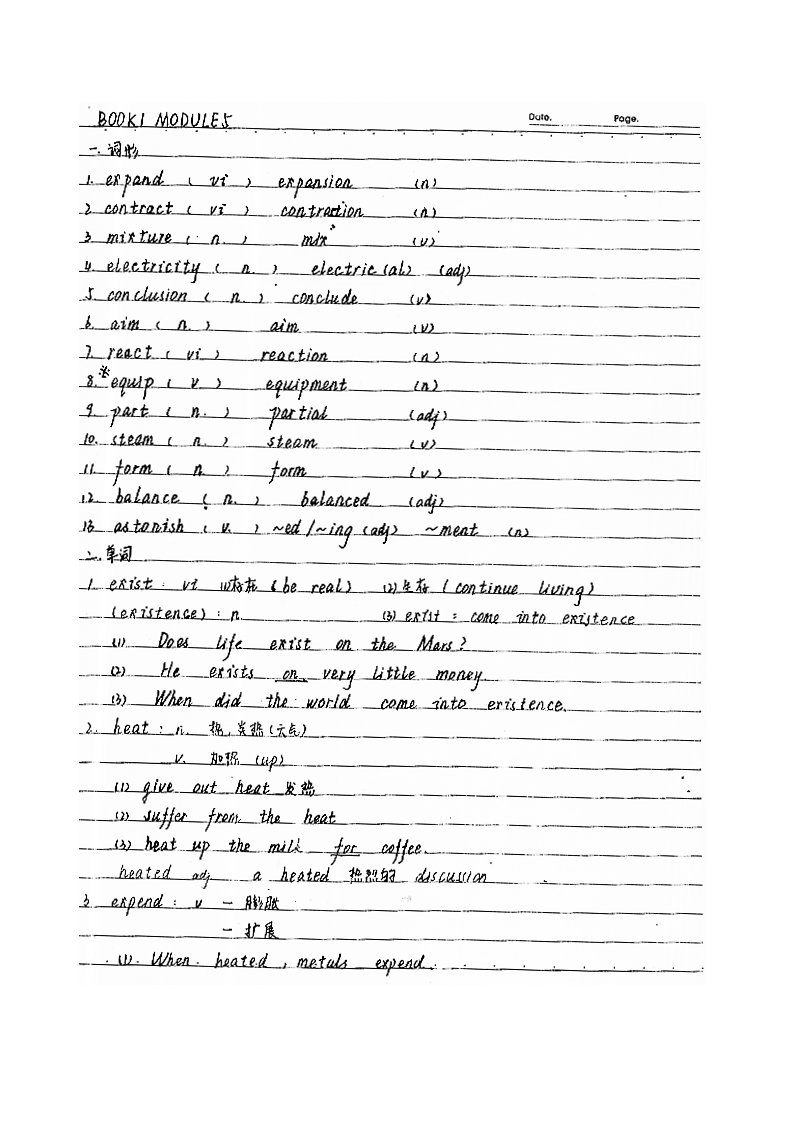 BOOK1 MODULE5
Date. Page.
一.词形
1. expand ( vi ) expansion (n)
2 contract ( vi ) contraction (n)
3 mixture ( n. ) mix (v)
4. electricity ( n. ) electric(al) (adj)
5. conclusion ( n. ) conclude (v)
6. aim ( n. ) aim (v)
7. react ( vi ) reaction (n)
8.※ equip ( v ) equipment (n)
9. part ( n. ) partial (adj)
10. steam ( n. ) steam (v)
11. form ( n. ) form (v)
12. balance ( n. ) balanced (adj)
13. astonish ( v. ) ~ed/~ing (adj) ~ment (n)
二.单词
1. exist : vi (1)存在 (be real) (2)生存 (continue living)
(existence) : n. (3) exist : come into existence
(1) Does life exist on the Mars?
(2) He exists on very little money
(3) When did the world come into existence.
2. heat : n. 热,炎热(天气)
v. 加热 (up)
(1) give out heat 发热
(2) suffer from the heat
(3) heat up the milk for coffee.
heated adj a heated 热烈的 discussion
3 expend : v 一 膨胀
一 扩展
(1). When heated , metals expend.